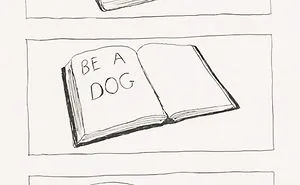 BE A
DOG